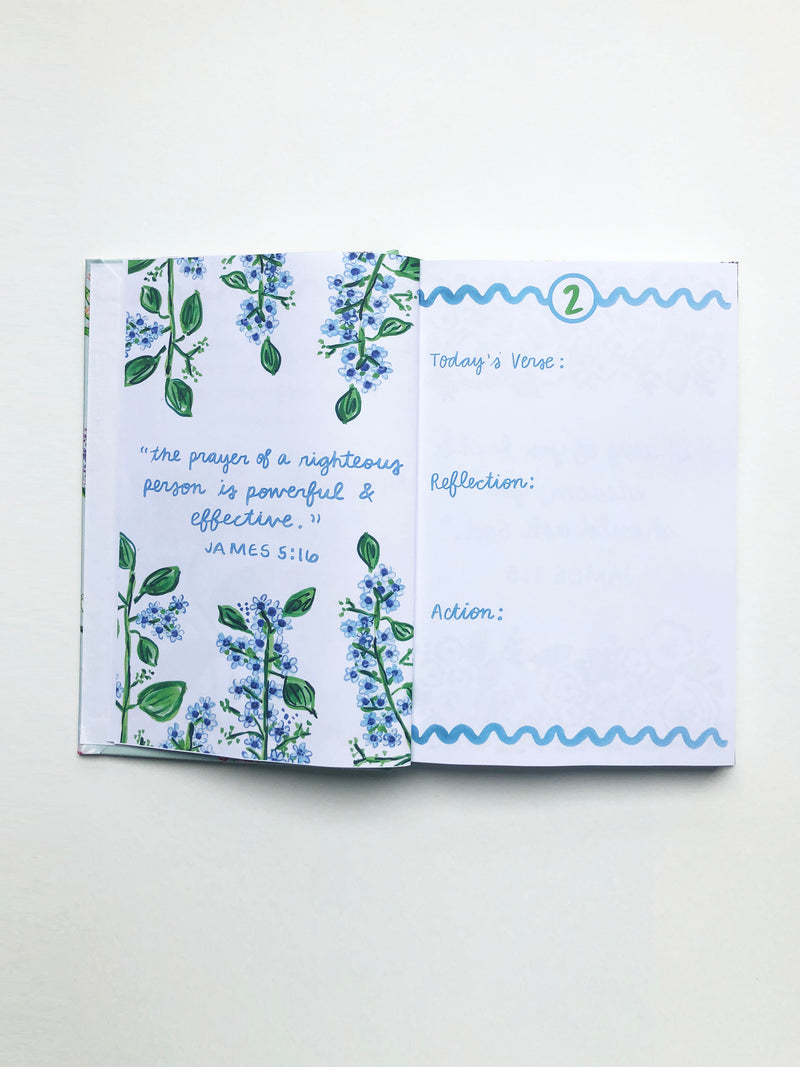 "the prayer of a righteous
person is powerful &
effective."
JAMES 5:16
2
Today's Verse:
Reflection:
Action: